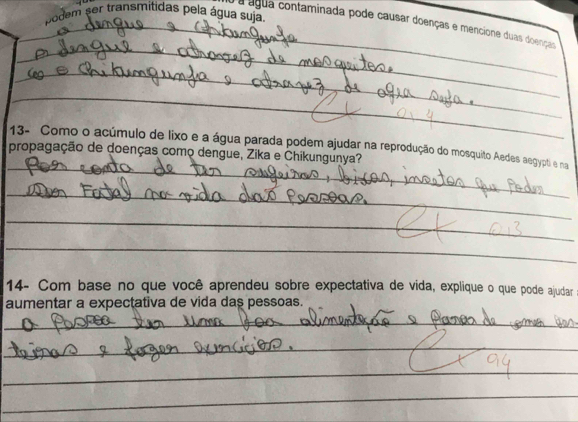 a água contaminada pode causar doenças e mencione duas doenças
podem ser transmitidas pela água suja.
a dengue e chikungunfa
a dengue e atravez de mosquitos.
e chikungunfa e atravez de agua suja.
Cx 0,4
13- Como o acúmulo de lixo e a água parada podem ajudar na reprodução do mosquito Aedes aegypti e na
propagação de doenças como dengue, Zika e Chikungunya?
Por conta de ter sugeiras, bicos, insetos que podem
Fatal na vida das pessoas.
Cx 0,3
14- Com base no que você aprendeu sobre expectativa de vida, explique o que pode ajudar
aumentar a expectativa de vida das pessoas.
a pessoa ter uma boa alimentação e parar de comer
e fazer exercicios.
Cx 0,4